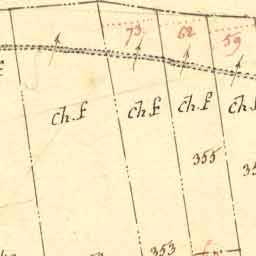 73 62 59
ch.f ch.f ch.f ch.
355 35
353